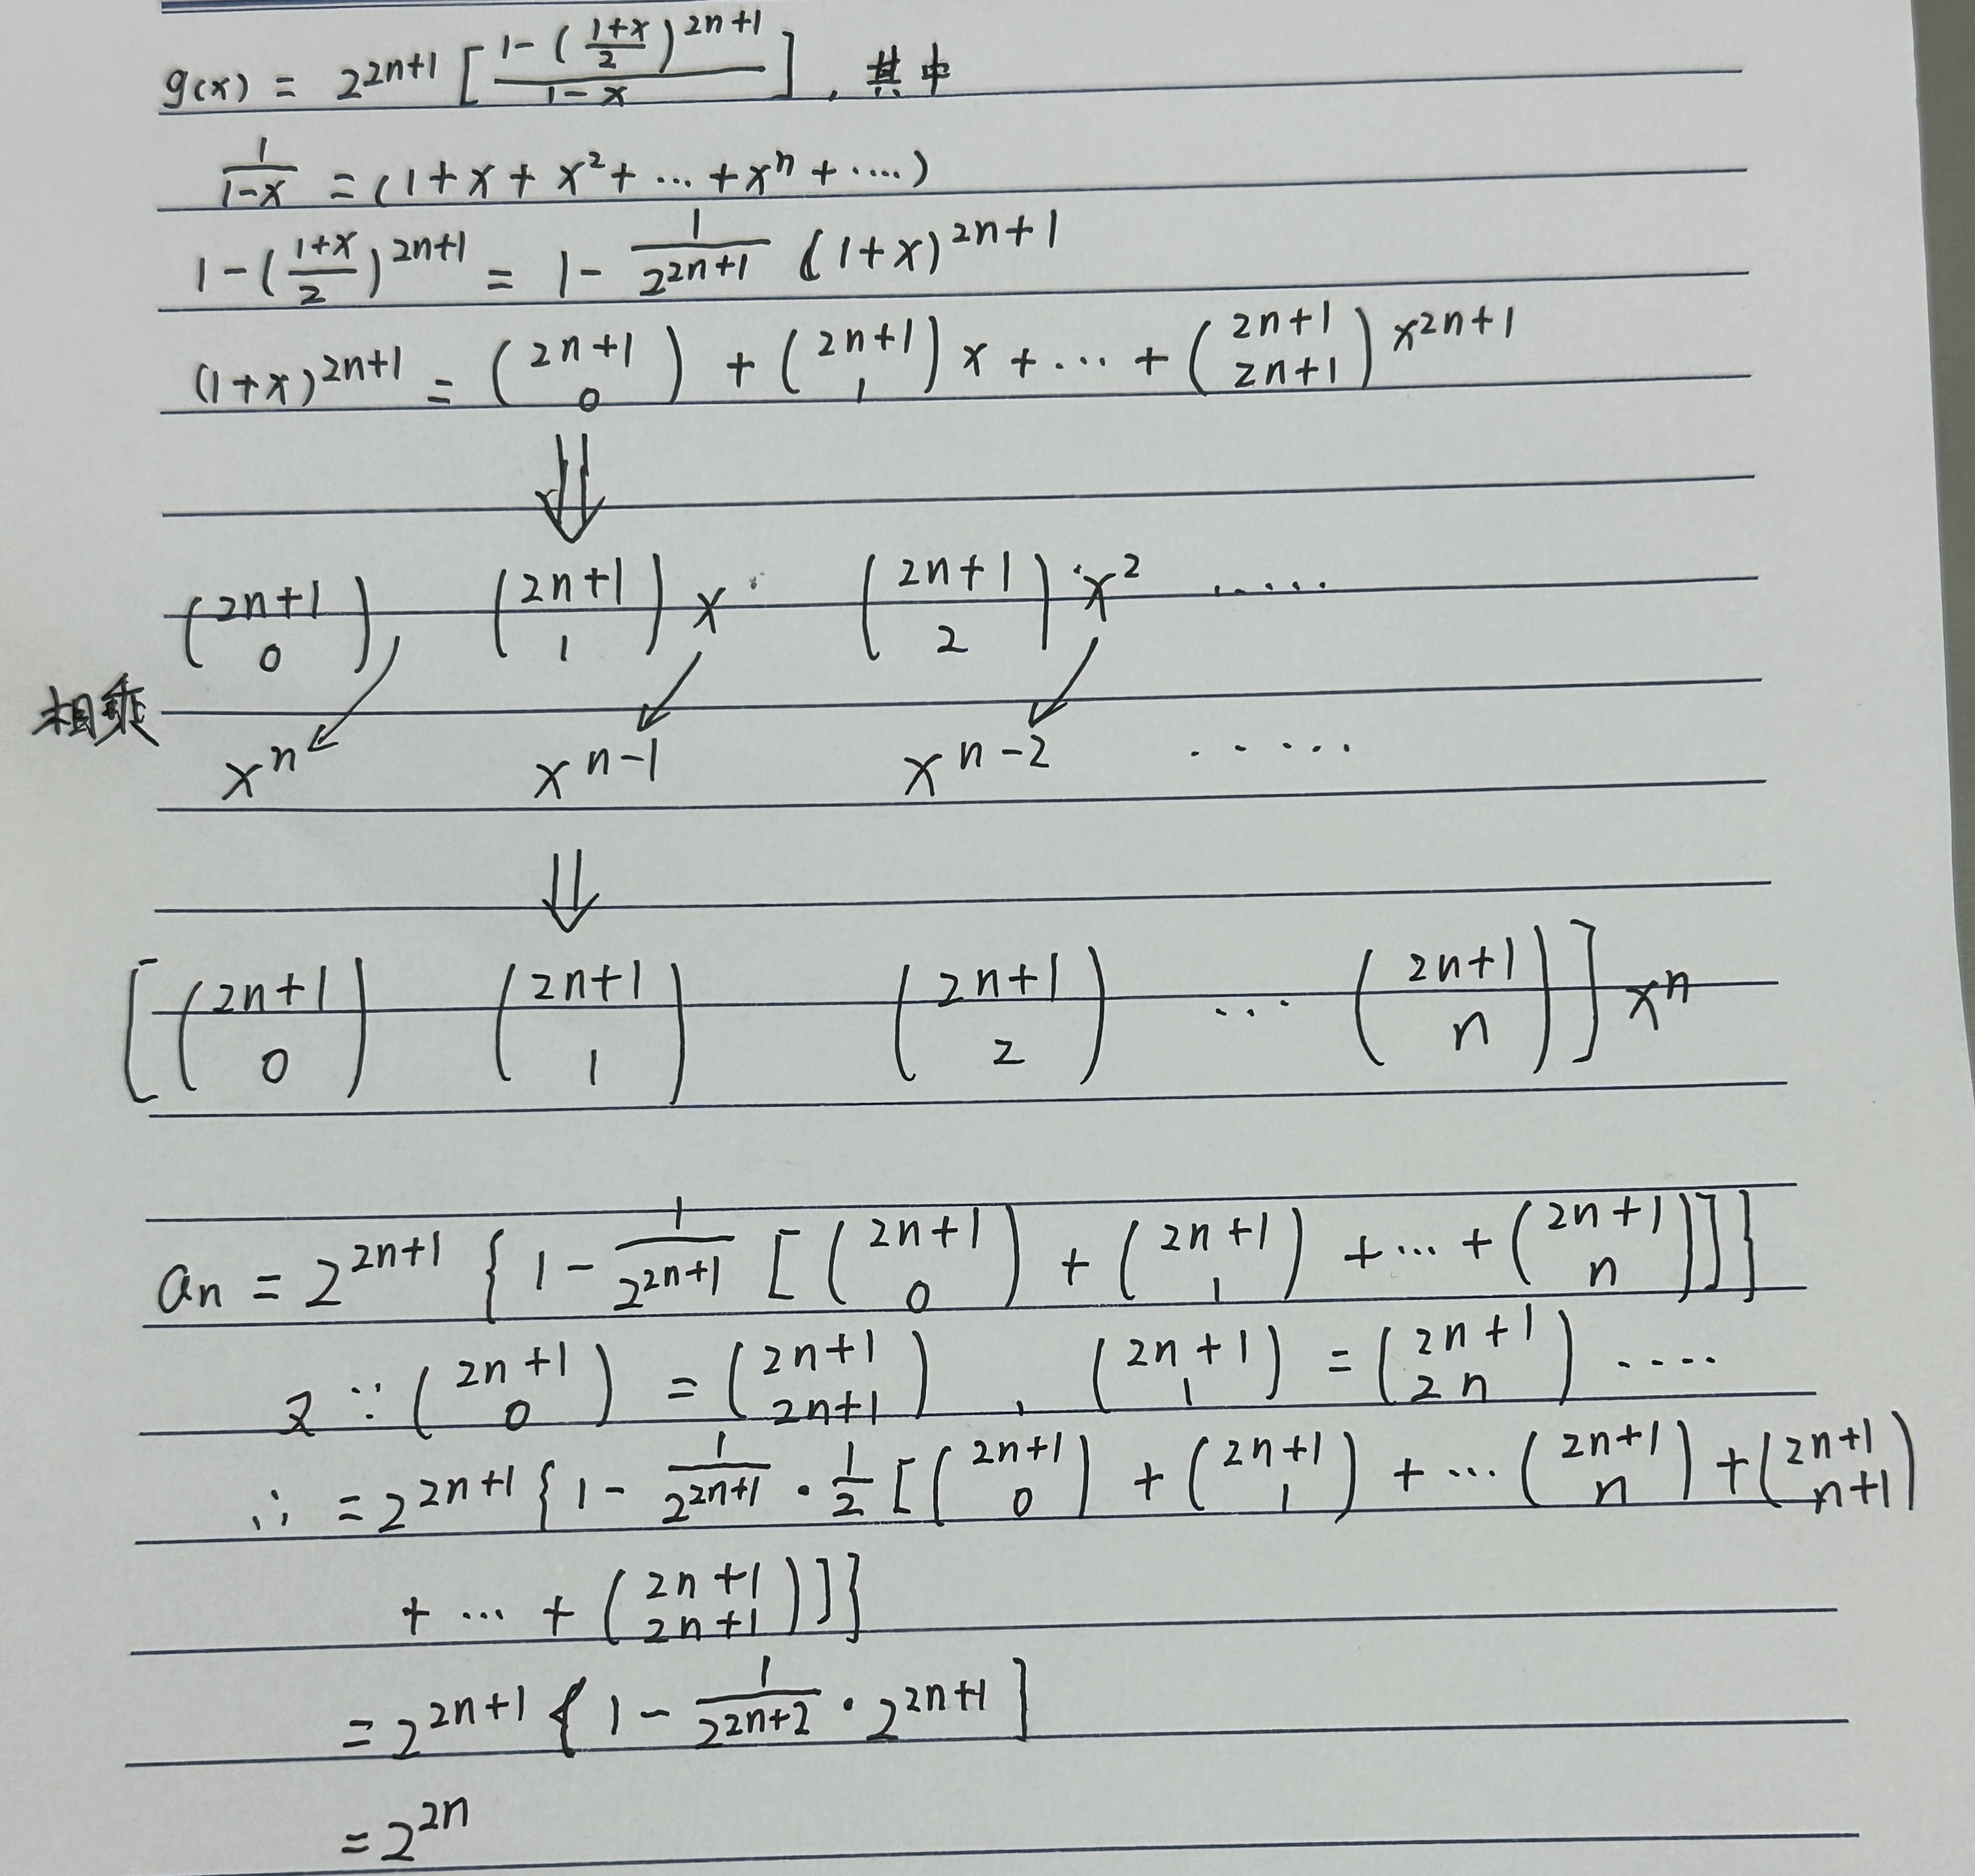 g(x) = 2^{2n+1} [ \frac{1-(\frac{1+x}{2})^{2n+1}}{1-x} ] , 其中
\frac{1}{1-x} = (1+x+x^2+…+x^n+….)
1-(\frac{1+x}{2})^{2n+1} = 1- \frac{1}{2^{2n+1}} (1+x)^{2n+1}
(1+x)^{2n+1} = \binom{2n+1}{0} + \binom{2n+1}{1} x + … + \binom{2n+1}{2n+1} x^{2n+1}
⇓
\binom{2n+1}{0} \binom{2n+1}{1} x \binom{2n+1}{2} x^2 ……
相乘
x^n x^{n-1} x^{n-2} ……
⇓
[ \binom{2n+1}{0} \binom{2n+1}{1} \binom{2n+1}{2} … \binom{2n+1}{n} ] x^n
a_n = 2^{2n+1} { 1 - \frac{1}{2^{2n+1}} [ \binom{2n+1}{0} + \binom{2n+1}{1} + … + \binom{2n+1}{n} ] }
又 ∵ \binom{2n+1}{0} = \binom{2n+1}{2n+1} , \binom{2n+1}{1} = \binom{2n+1}{2n} ….
∴ = 2^{2n+1} { 1 - \frac{1}{2^{2n+1}} · \frac{1}{2} [ \binom{2n+1}{0} + \binom{2n+1}{1} + … \binom{2n+1}{n} + \binom{2n+1}{n+1}
+ … + \binom{2n+1}{2n+1} ] }
= 2^{2n+1} { 1 - \frac{1}{2^{2n+2}} · 2^{2n+1} ]
= 2^{2n}